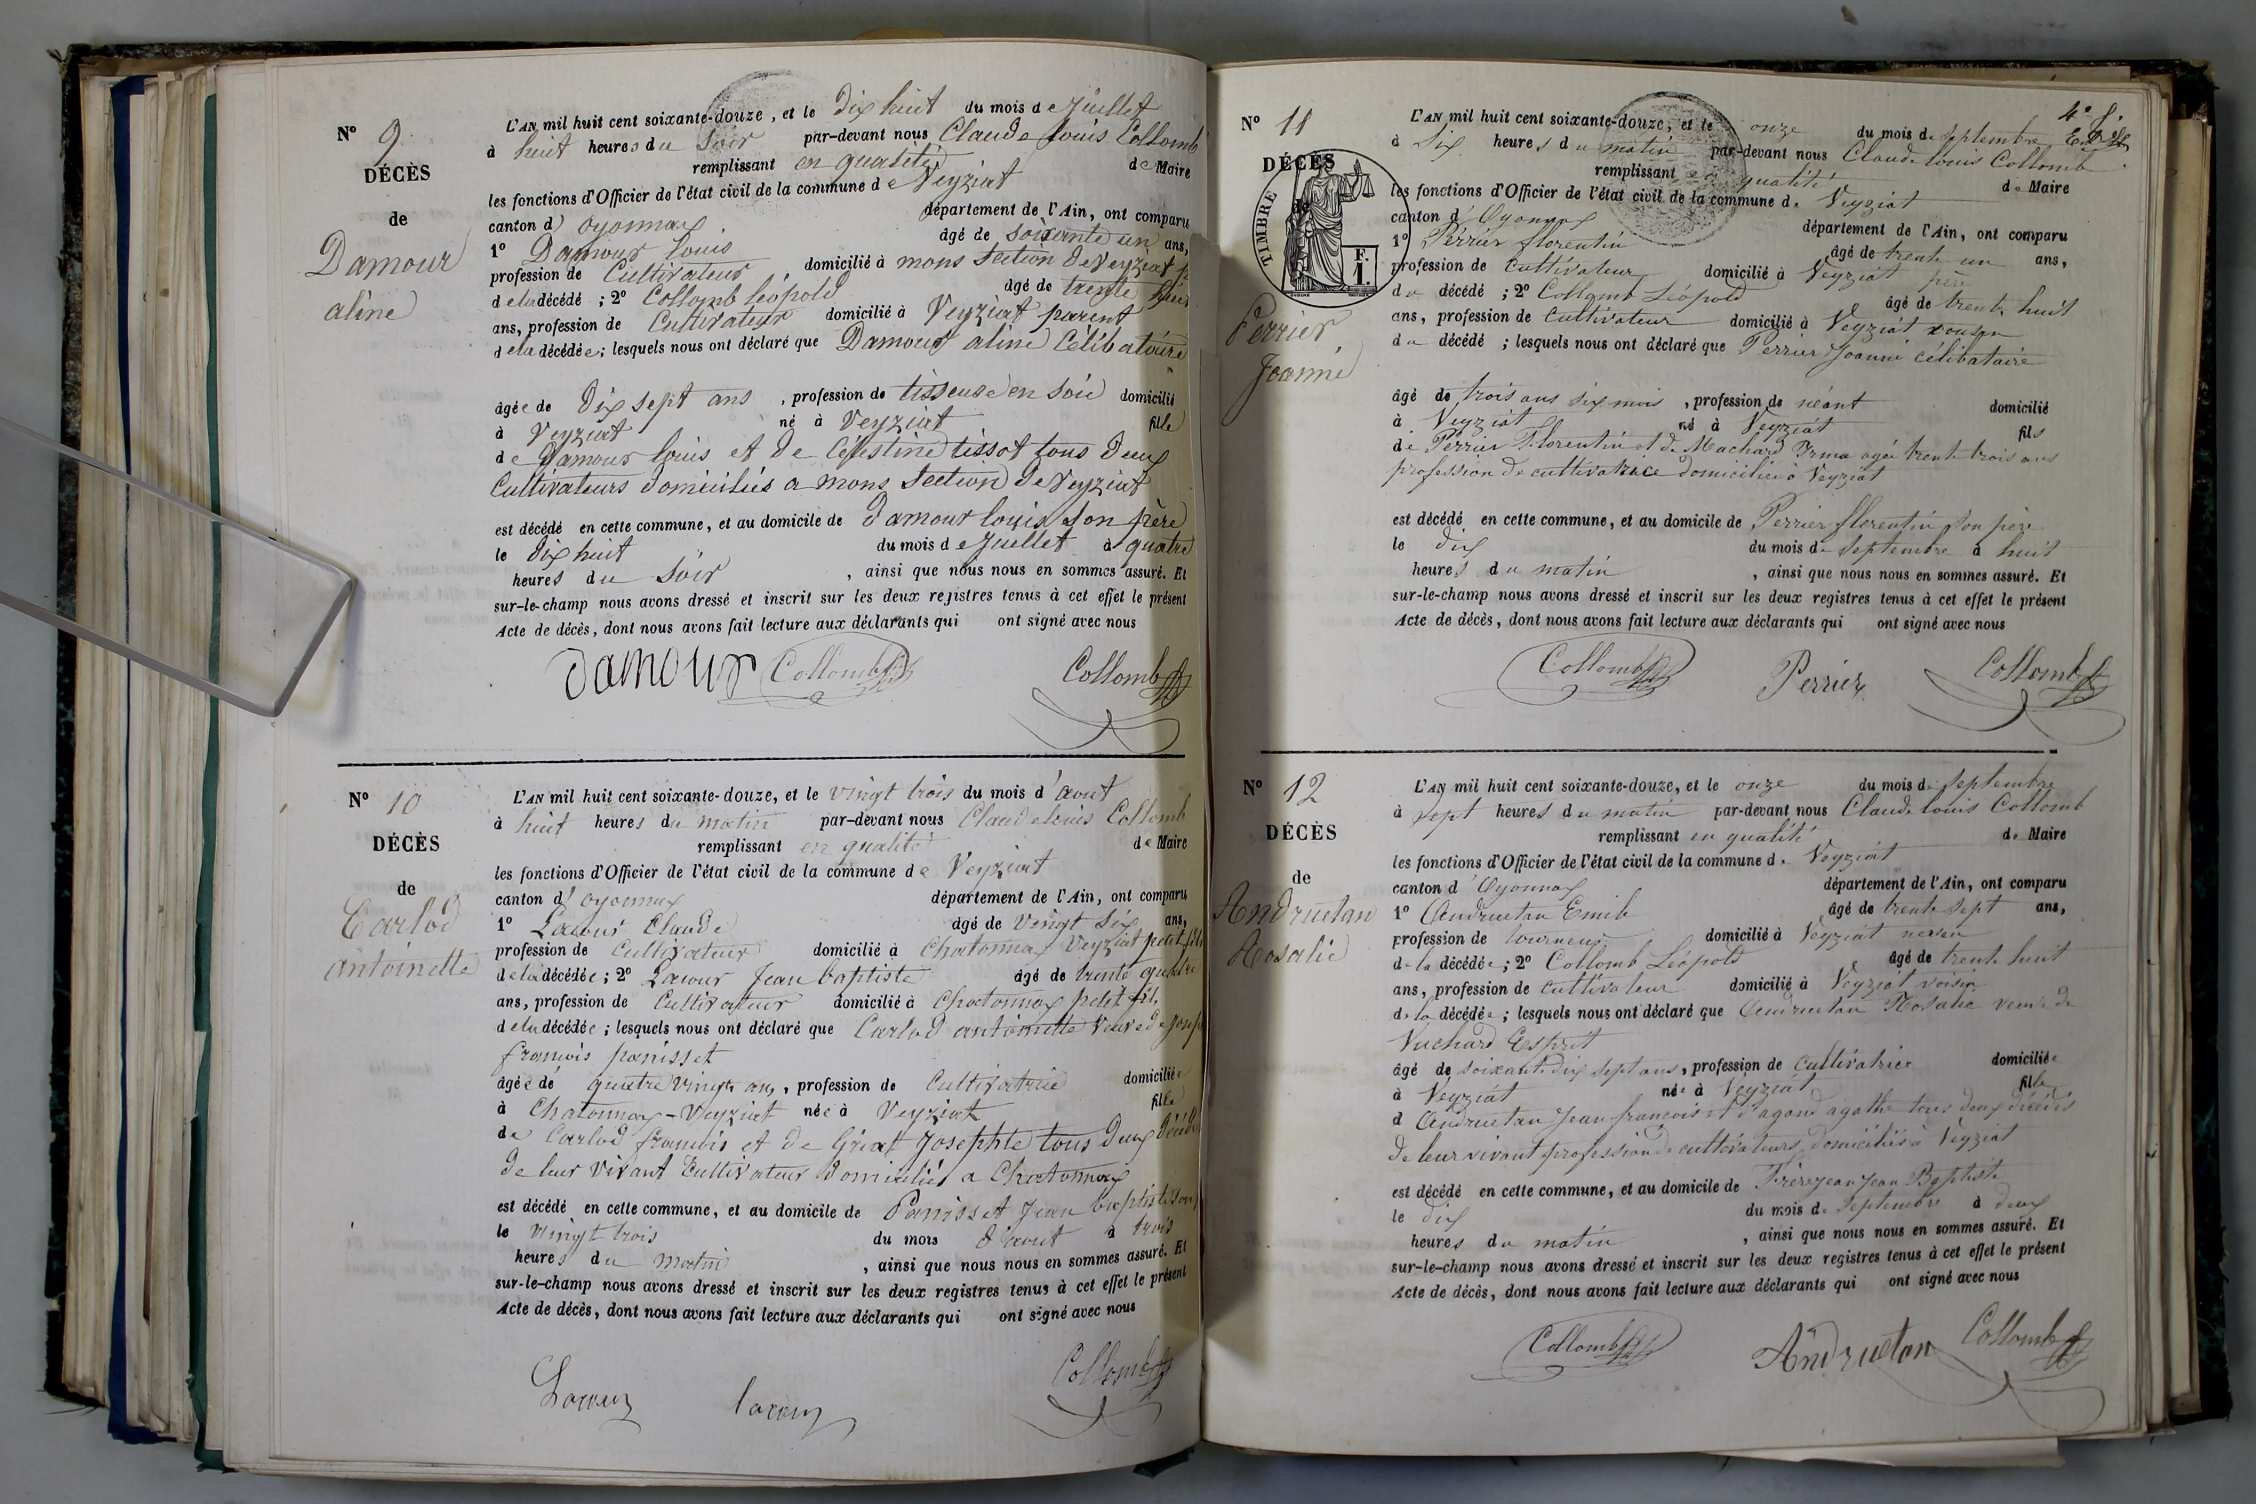 N° 9
DÉCÈS
de
Damour
aline
L'AN mil huit cent soixante-douze, et le Dix huit du mois de Juillet
à huit heures du Soir par-devant nous Claude Louis Collomb
remplissant en qualité de Maire
les fonctions d'Officier de l'état civil de la commune de Veyziat
canton d'oyonnax département de l'Ain, ont comparu
1° Damour Louis âgé de soixante un ans,
profession de Cultivateur, domicilié à mons Section de Veyziat
de la décédé ; 2° Collomb Léopold âgé de trente huit
ans, profession de Cultivateur domicilié à Veyziat parent
de la décédée ; lesquels nous ont déclaré que Damour aline Célibataire
âgée de Dix sept ans, profession de tisseuse en Soie domicilié
à Veyziat né à Veyziat fille
de Damour Louis et de Célestine tissot tous Deux
Cultivateurs domiciliés a mons Section de Veyziat
est décédé en cette commune, et au domicile de Damour louis son père
le Dix huit du mois de Juillet à quatre
heures du Soir, ainsi que nous nous en sommes assuré. Et
sur-le-champ nous avons dressé et inscrit sur les deux registres tenus à cet effet le présent
Acte de décès, dont nous avons fait lecture aux déclarants qui ont signé avec nous
Damour Collomb Collomb
N° 10
DÉCÈS
de
Carlod
antoinette
L'AN mil huit cent soixante-douze, et le vingt trois du mois d'aout
à huit heures du matin par-devant nous Claude Louis Collomb
remplissant en qualité de Maire
les fonctions d'Officier de l'état civil de la commune de Veyziat
canton d'oyonnax département de l'Ain, ont comparu
1° Lacour Claude âgé de Vingt Six ans,
profession de Cultivateur domicilié à Chatonnax Veyziat petit fils
de la décédée ; 2° Lacour Jean baptiste âgé de trente quatre
ans, profession de Cultivateur domicilié à Chatonnax petit fils
de la décédée ; lesquels nous ont déclaré que Carlod antoinette Veuve de
françois panisset
âgée de quatre vingt ans, profession de Cultivatrice domiciliée
à Chatonnax - Veyziat née à Veyziat fille
de Carlod françois et de Griat Josephte tous Deux
de leur vivant Cultivateurs domiciliés a Chatonnax
est décédé en cette commune, et au domicile de Panisset Jean baptiste
le vingt trois du mois d'aout à trois
heures du matin, ainsi que nous nous en sommes assuré. Et
sur-le-champ nous avons dressé et inscrit sur les deux registres tenus à cet effet le présent
Acte de décès, dont nous avons fait lecture aux déclarants qui ont signé avec nous
Lacour lacour Collomb
4e f.
N° 11
DÉCÈS
de
TIMBRE
F.
1.
Perrier
Joanni
L'AN mil huit cent soixante-douze, et le onze du mois de Septembre
à Six heures du matin par-devant nous Claude Louis Collomb
remplissant en qualité de Maire
les fonctions d'Officier de l'état civil de la commune de Veyziat
canton d'Oyonnax département de l'Ain, ont comparu
1° Perrier florentin âgé de trente un ans,
profession de Cultivateur domicilié à Veyziat père
du décédé ; 2° Collomb Léopold âgé de trente huit
ans, profession de Cultivateur domicilié à Veyziat cousin
du décédé ; lesquels nous ont déclaré que Perrier Joanni célibataire
âgé de trois ans six mois, profession de néant domicilié
à Veyziat né à Veyziat fils
de Perrier Florentin et de Machard Irma agée trente trois ans
profession de cultivatrice domiciliée à Veyziat
est décédé en cette commune, et au domicile de Perrier florentin son père
le dix du mois de Septembre à huit
heures du matin, ainsi que nous nous en sommes assuré. Et
sur-le-champ nous avons dressé et inscrit sur les deux registres tenus à cet effet le présent
Acte de décès, dont nous avons fait lecture aux déclarants qui ont signé avec nous
Collomb Perrier Collomb
N° 12
DÉCÈS
de
Andruetan
Rosalie
L'AN mil huit cent soixante-douze, et le onze du mois de Septembre
à Sept heures du matin par-devant nous Claude Louis Collomb
remplissant en qualité de Maire
les fonctions d'Officier de l'état civil de la commune de Veyziat
canton d'Oyonnax département de l'Ain, ont comparu
1° Andruetan Emile âgé de trente sept ans,
profession de tourneur domicilié à Veyziat neveu
de la décédée ; 2° Collomb Léopold âgé de trente huit
ans, profession de cultivateur domicilié à Veyziat voisin
de la décédée ; lesquels nous ont déclaré que Andruetan Rosalie veuve de
Vuchard Esprit
âgé de soixante dix sept ans, profession de cultivatrice domiciliée
à Veyziat née à Veyziat fille
d'Andruetan Jean françois et d' agathe tous deux décédés
de leur vivant profession de cultivateurs, domiciliés à Veyziat
est décédé en cette commune, et au domicile de Frèrejean Jean Baptiste
le dix du mois de Septembre à deux
heures du matin, ainsi que nous nous en sommes assuré. Et
sur-le-champ nous avons dressé et inscrit sur les deux registres tenus à cet effet le présent
Acte de décès, dont nous avons fait lecture aux déclarants qui ont signé avec nous
Collomb Andruetan Collomb